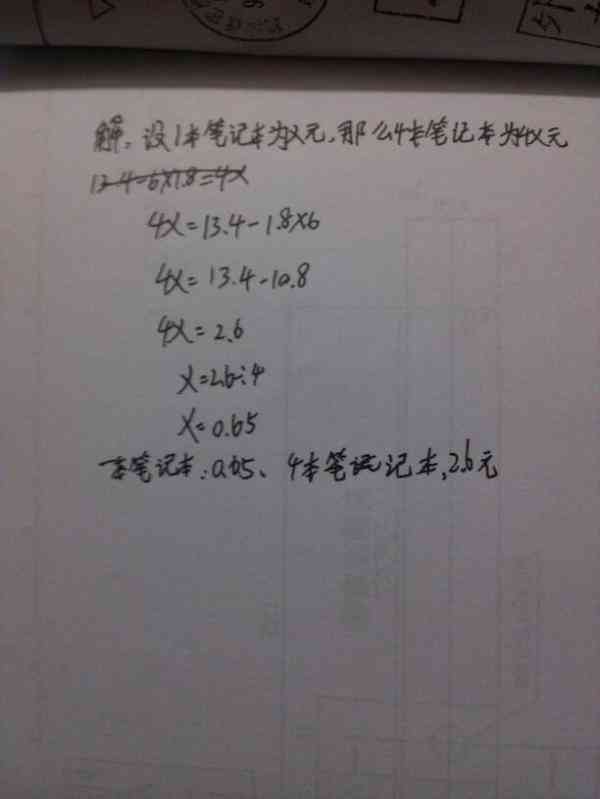 解:设1本笔记本为x元,那么4本笔记本为4x元
13.4-6×1.8=4x
4x=13.4-1.8×6
4x=13.4-10.8
4x=2.6
x=2.6÷4
x=0.65
一本笔记本:0.65、4本笔记本,2.6元